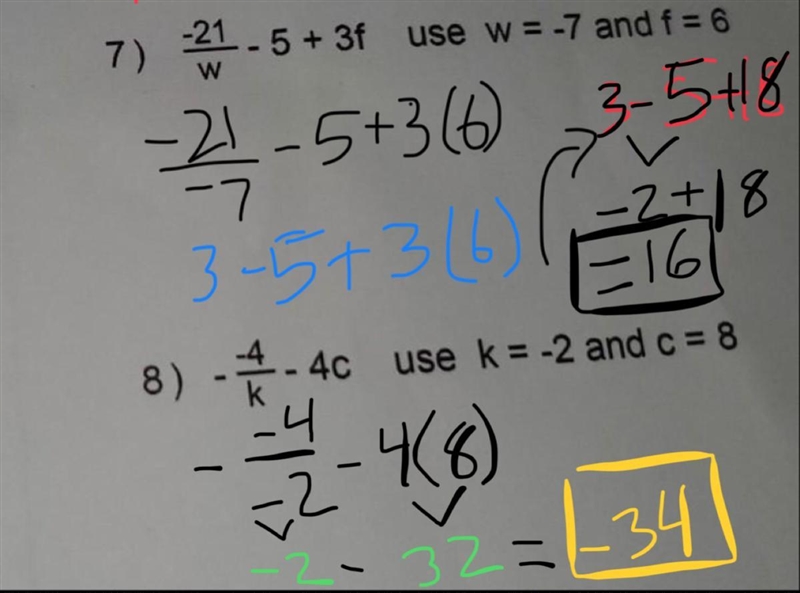 7) -21/w - 5 + 3f use w = -7 and f = 6
-21/-7 - 5 + 3(6)
3 - 5 + 3(6)
3 - 5 + 18
-2 + 18
= 16
8) - -4/k - 4c use k = -2 and c = 8
- -4/-2 - 4(8)
-2 - 32 = -34